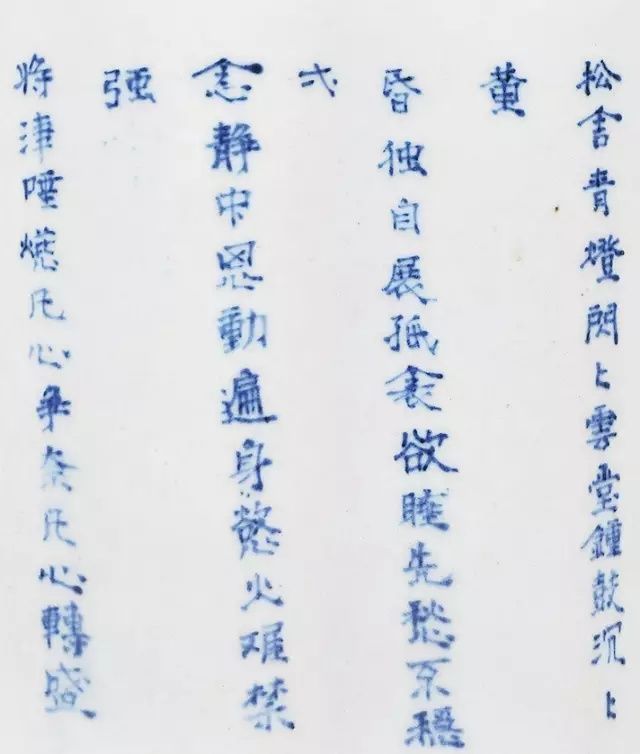 松舍青燈閃々雲堂鍾鼓沉々
黄
昏独自展孤衾欲睡先愁不穩
弌
念静中思動遍身慾火难禁
强
将津唾嚥凡心争奈凡心轉盛